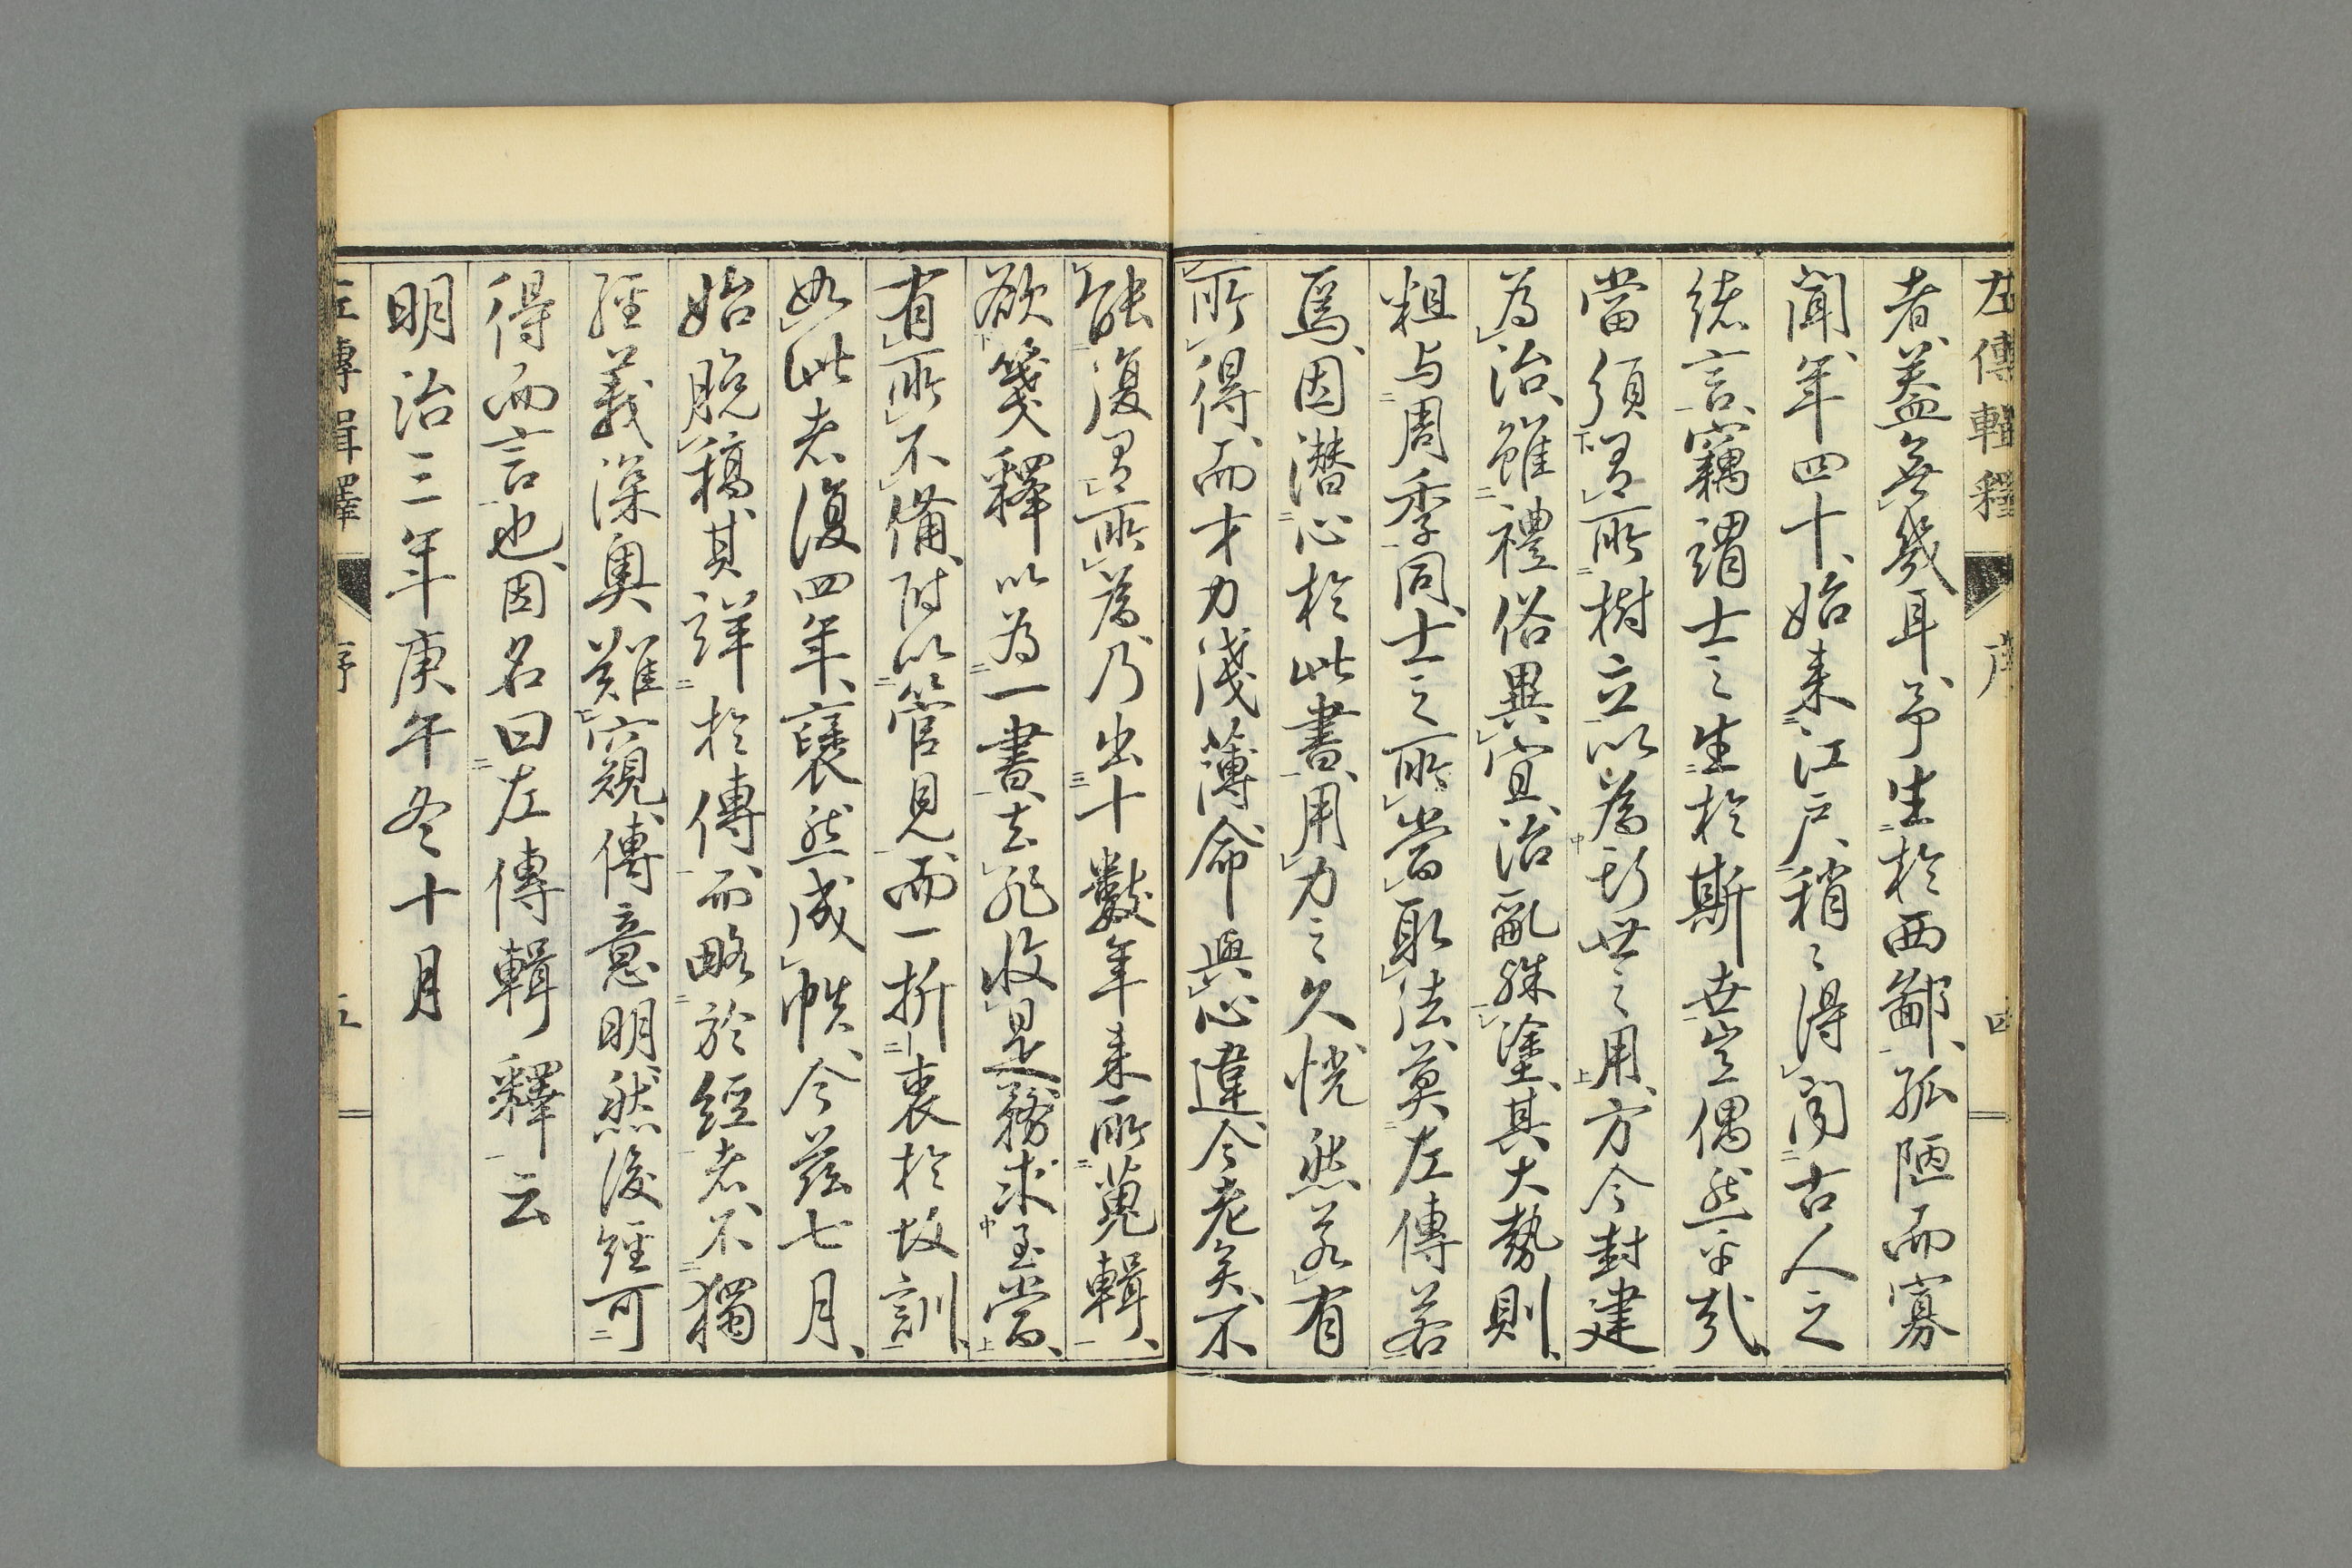 左傳輯釋 序 四
者、蓋無幾耳、予生於西鄙、孤陋而寡
聞、年四十、始来江戸、稍〻得聞古人之
緒言、竊謂士之生於斯世、豈偶然乎哉、
當須有所樹立以為斯世之用、方今封建
為治、雖禮俗異宜、治亂殊塗、其大勢則、
粗与周季同、士之所當取法、莫左傳若
焉、因潜心於此書、用力之久、恍然若有
所得、而才力淺薄、命與心違、今老矣、不
能復有所為、乃出十數年来所蒐輯、
欲箋釋以為一書、去非收是、務求至當、
有所不備、附以管見、而一折衷於故訓、
如此者復四年、裒然成帙、今茲七月、
始脱稿、其詳於傳而略於經者、不獨
經義深奥難窺、傳意明、然後經可
得而言也、因名曰左傳輯釋云
明治三年庚午冬十月
左傳輯釋 序 五